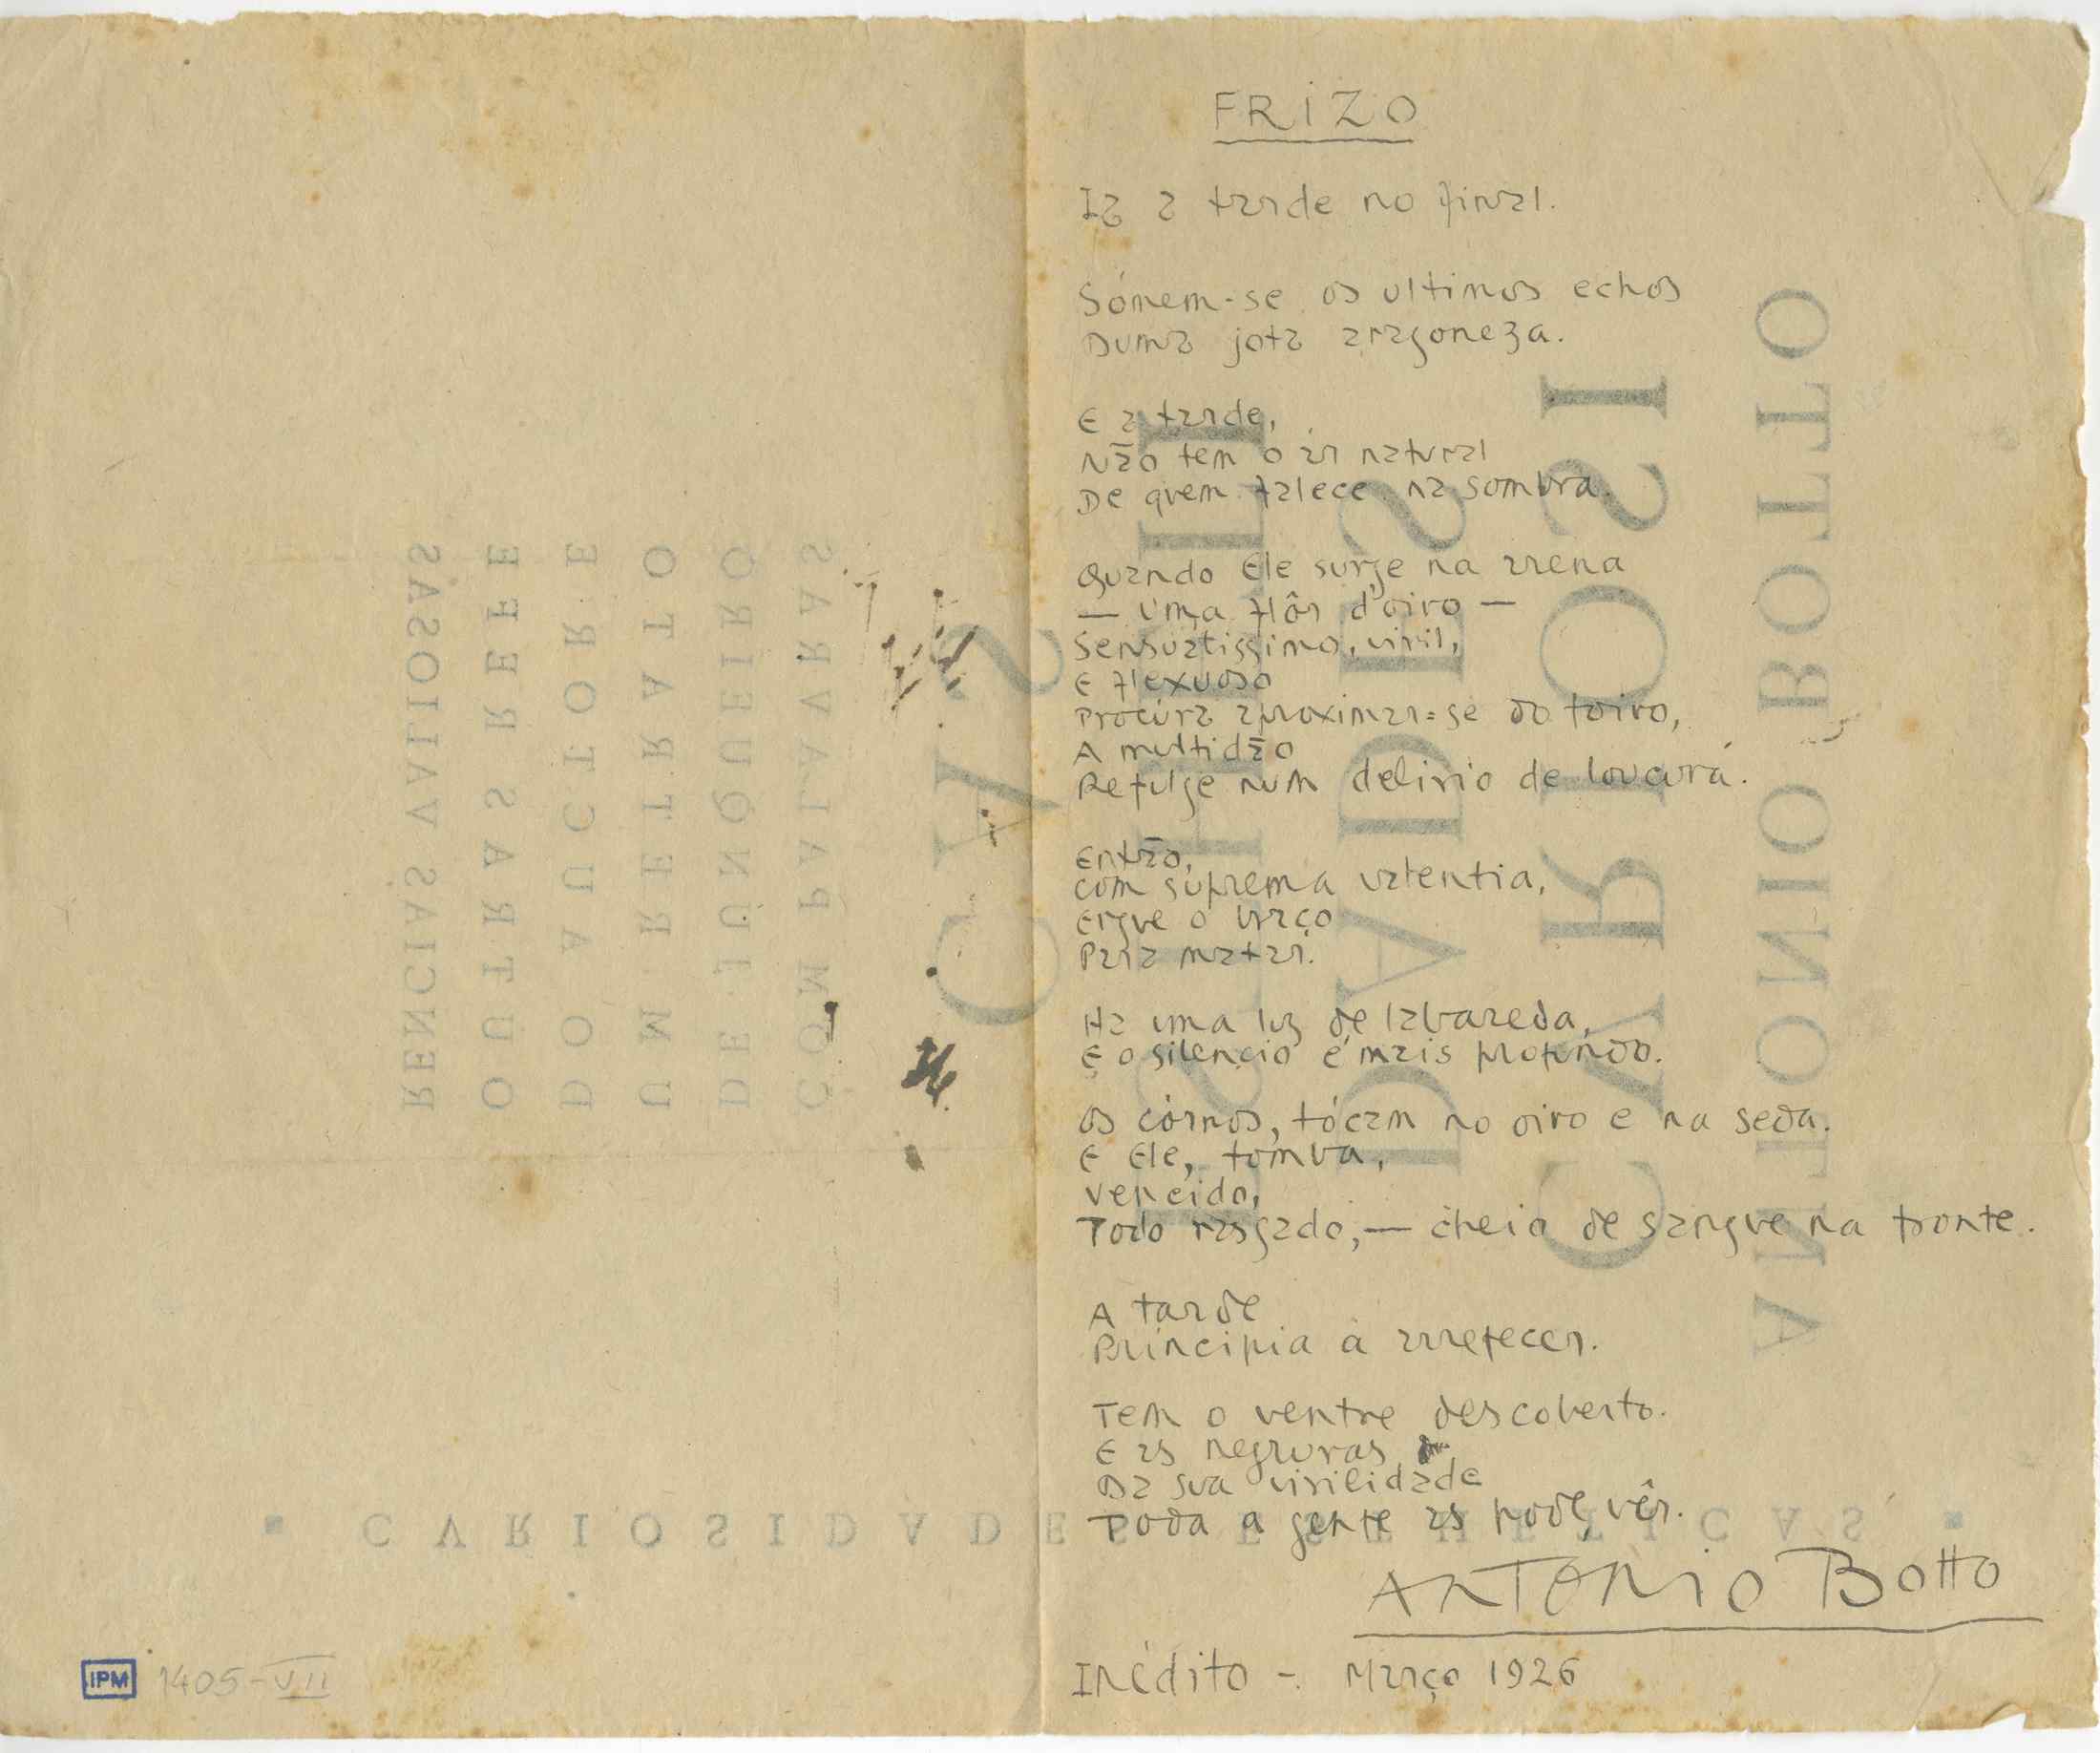 FRIZO
Ia a tarde no final.
Sómem-se os ultimos echos
Duma jota aragoneza.
E a tarde,
Não tem o ár natural
De quem falece na sombra.
Quando Ele surge na arena
— Uma flôr d'oiro —
Sensualissimo, viril,
E flexuoso
Procúra aproximar=se do toiro,
A multidão
Refulge num delirio de loucura.
Então,
Com suprema valentia,
Ergue o braço
Para matar.
Ha uma luz de labareda,
E o silencio é mais profundo.
Os córnos, tócam no oiro e na seda.
E Ele, tomba,
Vencido,
Todo rasgado, — cheio de sangue na fronte.
A tarde
Principia a arrefecer.
Tem o ventre descoberto.
E as negruras
Da sua virilidade
Toda a gente as pode vêr.
ANTONIO BOTTO
Inédito - Março 1926
IPM 1405-VII
ANTONIO BOTTO
CVRIOSI
DADES
ESTHETI
CAS
COM PALAVRAS
DE JUNQUEIRO
UM RETRATO
DO AUCTOR E
OUTRAS REFE
RENCIAS VALIOSAS
CVRIOSIDADES ESTHETICAS